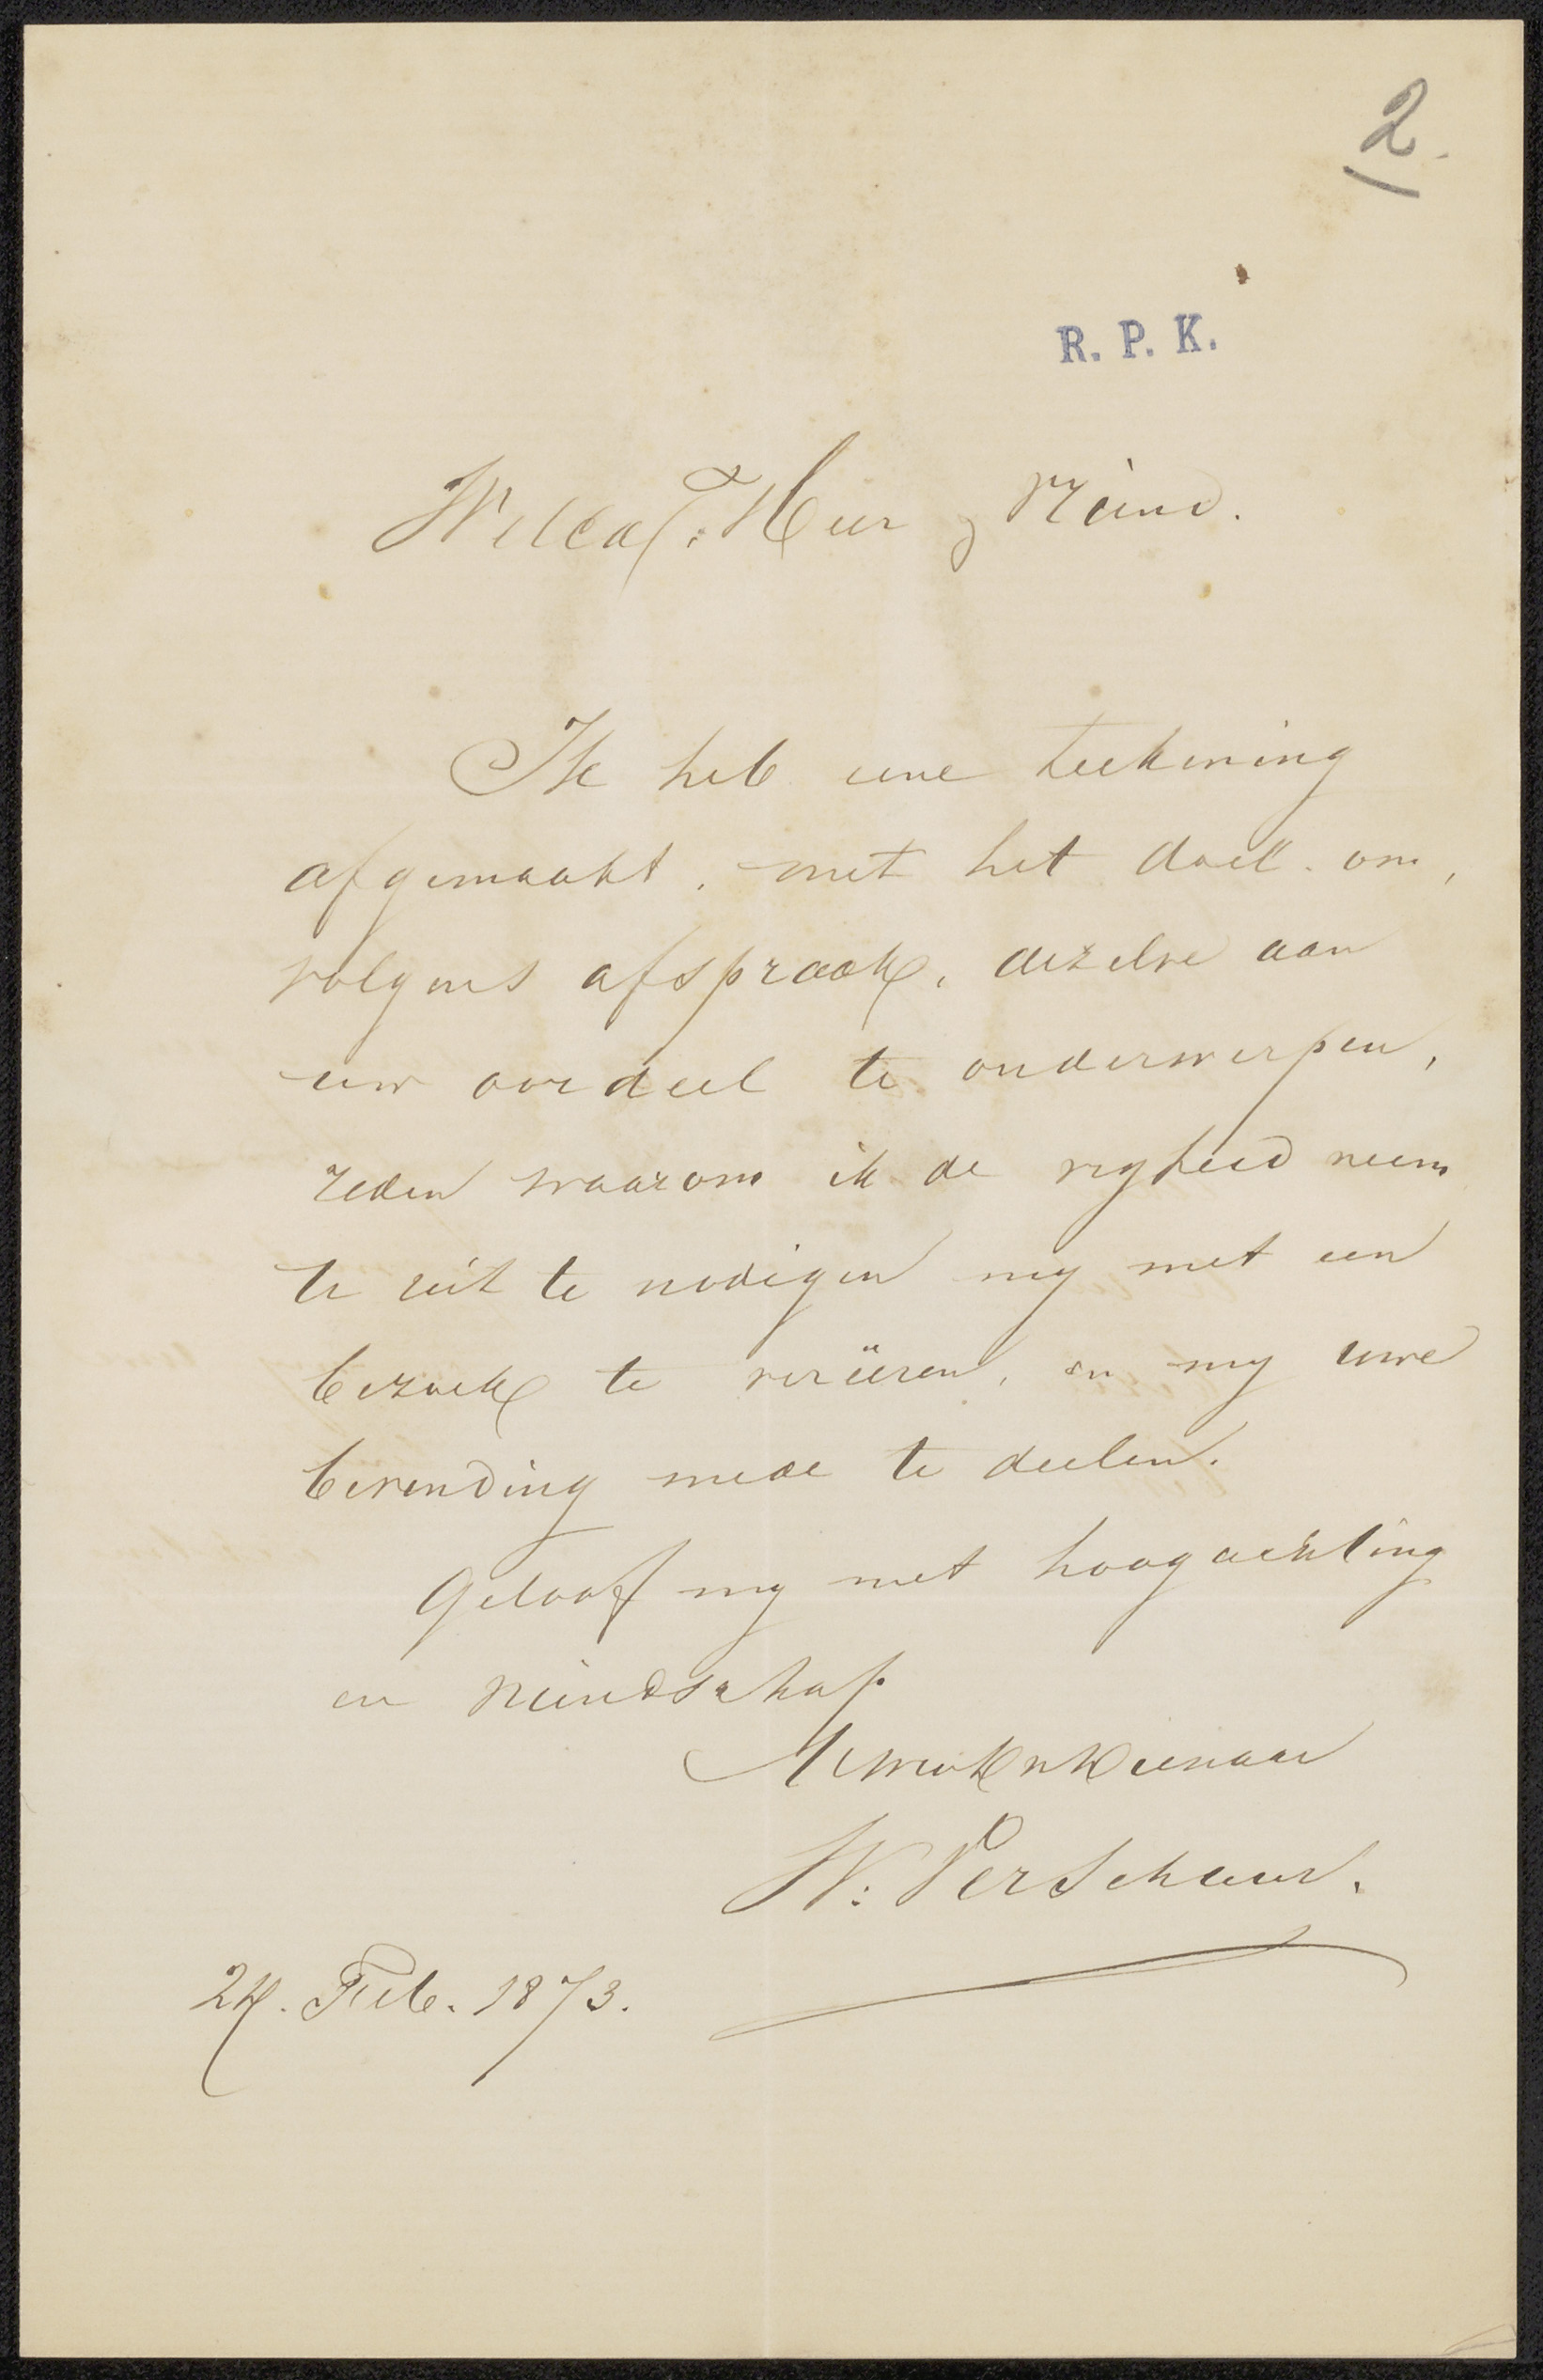 2.
R. P. K.
WelEd: Heer & Vriend.
Ik heb eene teekening
afgemaakt, met het doel om,
volgens afspraak, dezelve aan
uw oordeel te onderwerpen,
reden waarom ik de vryheid neem
U uit te nodigen my met een
bezoek te vereëren, en my uwe
bevinding mede te deelen.
Geloof my met hoogachting
en vriendschap
UEd
W: Verschuur.
24. Feb. 1873.